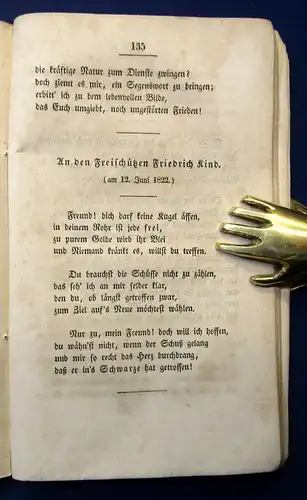 135
die kräftige Natur zum Dienste zwingen?
doch ziemt es mir, ein Segenswort zu bringen;
erbitt' ich zu dem lebenvollen Bilde,
das Euch umgiebt, noch ungestörten Frieden!
An den Freischützen Friedrich Kind.
(am 12. Juni 1822.)
Freund! dich darf keine Kugel äffen,
in deinem Rohr ist jede frei,
zu purem Golde wird ihr Blei
und Niemand kränkt es, willst du treffen.
Du brauchst die Schüsse nicht zu zählen,
das seh' ich an mir selber klar,
den du, ob längst getroffen zwar,
zum Ziel auf's Neue möchtest wählen.
Nur zu, mein Freund! doch will ich hoffen,
du wähn'st nicht, wenn der Schuß gelang
und mir so recht das Herz durchdrang,
daß er in's Schwarze hat getroffen!